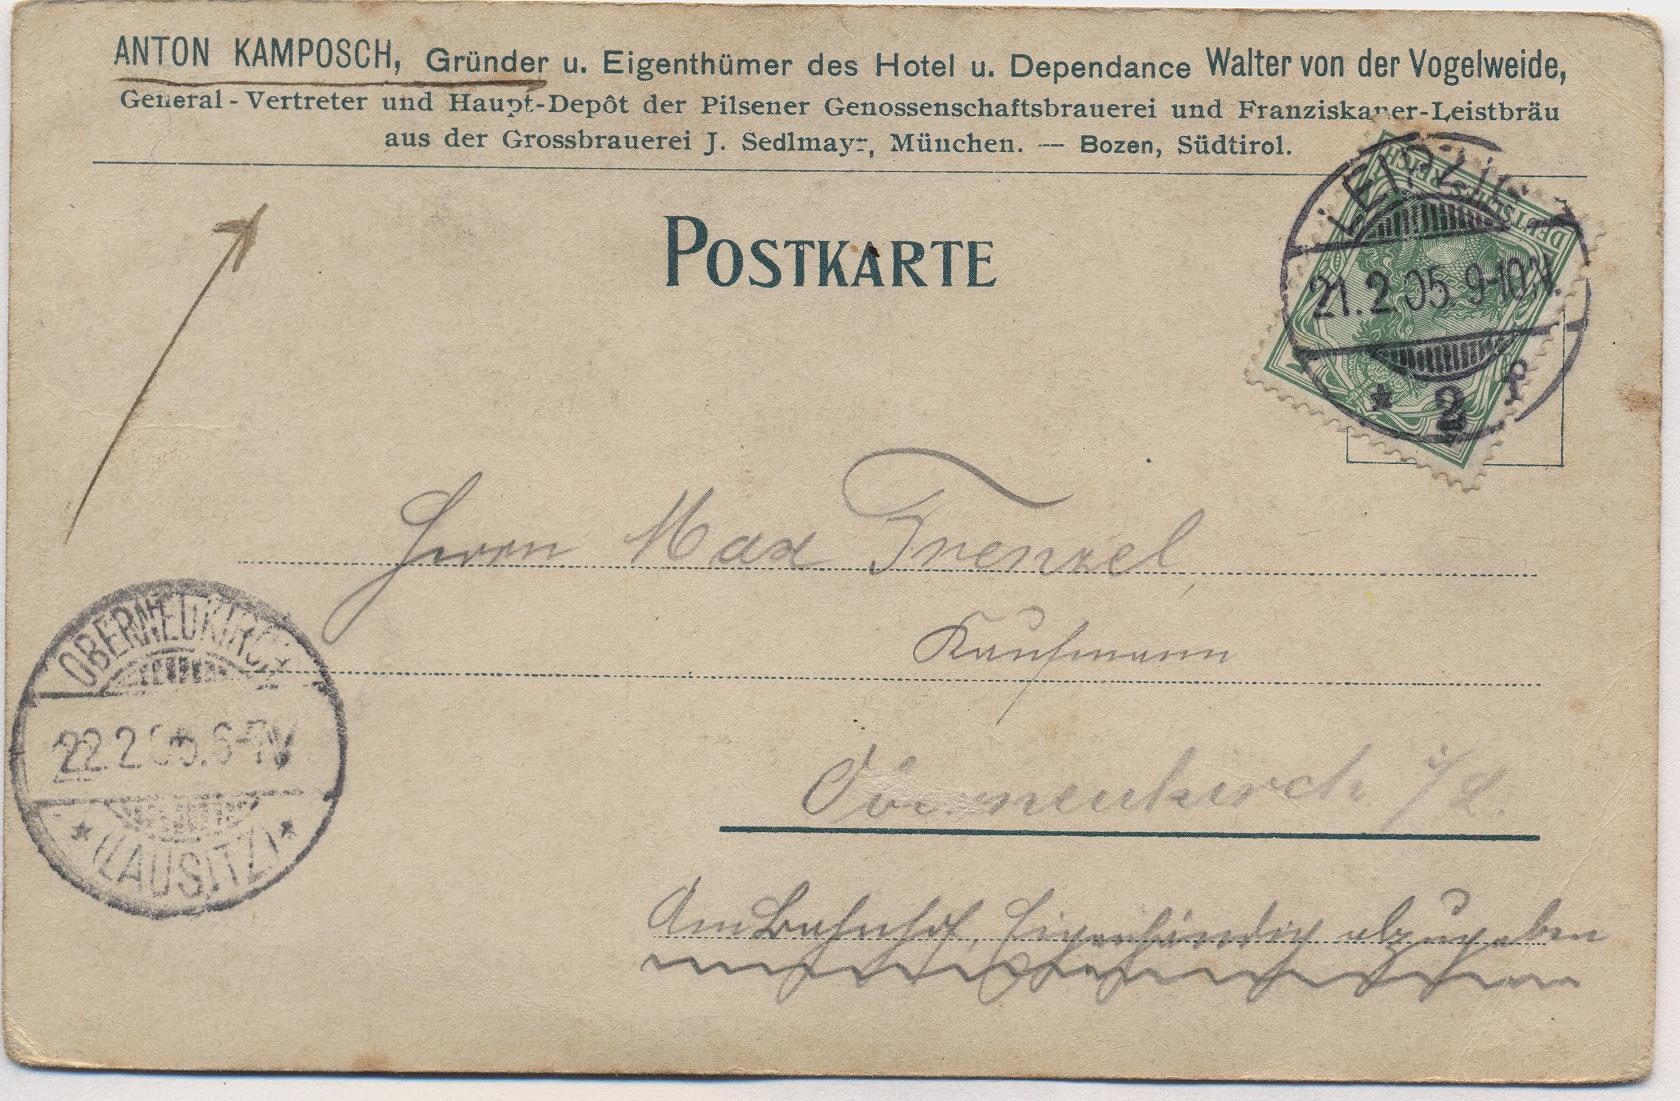 ANTON KAMPOSCH, Gründer u. Eigenthümer des Hotel u. Dependance Walter von der Vogelweide,
General-Vertreter und Haupt-Depôt der Pilsener Genossenschaftsbrauerei und Franziskaner-Leistbräu
aus der Grossbrauerei J. Sedlmayr, München. — Bozen, Südtirol.
POSTKARTE
DEUTSCHES REICH
LEIPZIG
21.2.05 9-10V.
* 2
Herrn Max Frenzel
Kaufmann
Oberneukirch i/L.
Am Bahnhof, Eigenhändig abzugeben
OBERNEUKIRCH
22.2.05. 6-7V
* (LAUSITZ) *